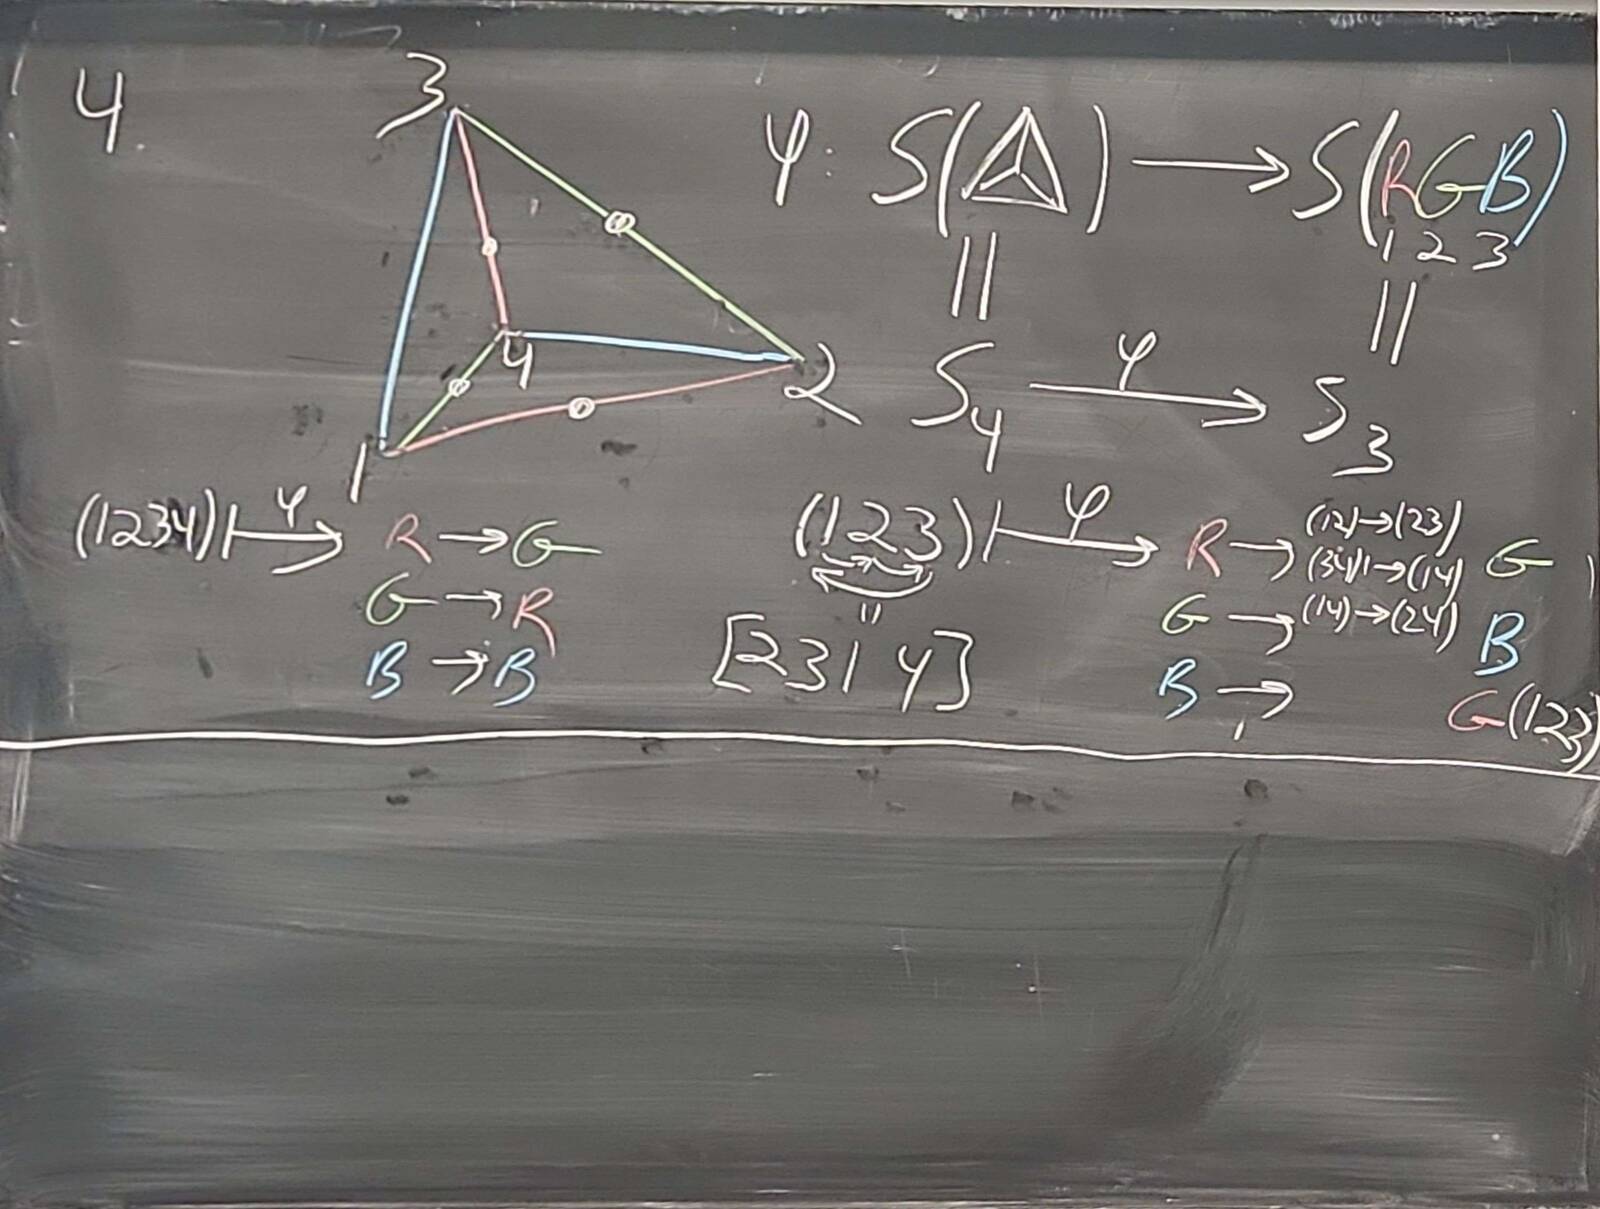 4
3
4
2
1
φ: S( ) → S(RGB)
1 2 3
||
||
S₄ →φ S₃
(1234) ↦φ R → G
G → R
B → B
(123) ↦φ R → (12)→(23) G
(34)↦(14)
||
G → (14)→(24) B
[231 4]
B → G(123)